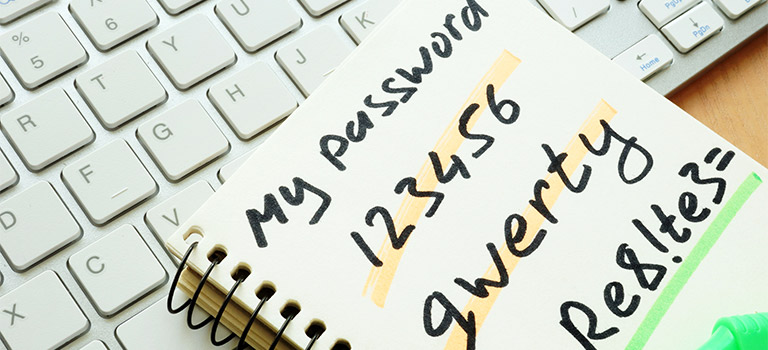 My password
123456
qwerty
Re8!te3=
%
5
T
Y
U
^
6
R
H
J
G
D
V
C
X
Home
PgUp
PgDn